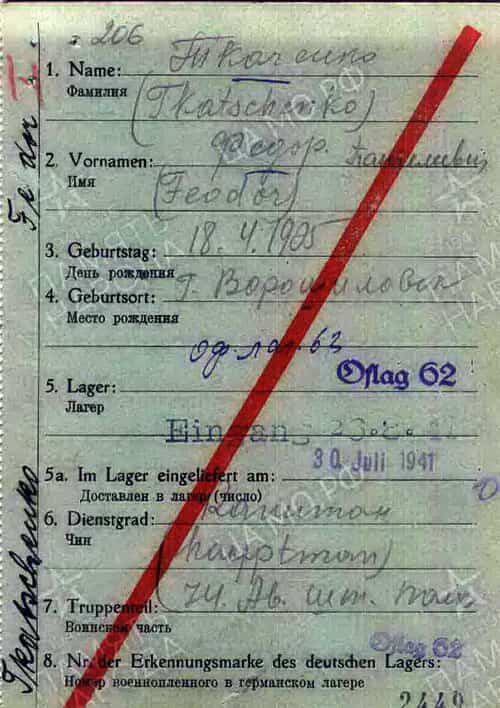 206
1. Name: Ткаченко
Фамилия
(Tkatschenko)
2. Vornamen: Федор. Пантелеевич
Имя
(Feodor)
3. Geburtstag: 18. 4. 1905
День рождения
4. Geburtsort: г. Ворошиловск
Место рождения
оф. лаг. 62
Oflag 62
5. Lager:
Лагер
Eingang
30. Juli 1941
5a. Im Lager eingeliefert am:
Доставлен в лагер (число)
6. Dienstgrad: Капитан
Чин
(hauptman)
74. Ав. шт. полк
7. Truppenteil:
Воинская часть
Oflag 62
8. Nr. der Erkennungsmarke des deutschen Lagers:
Номер военнопленного в германском лагере
2449
Tkatschenko